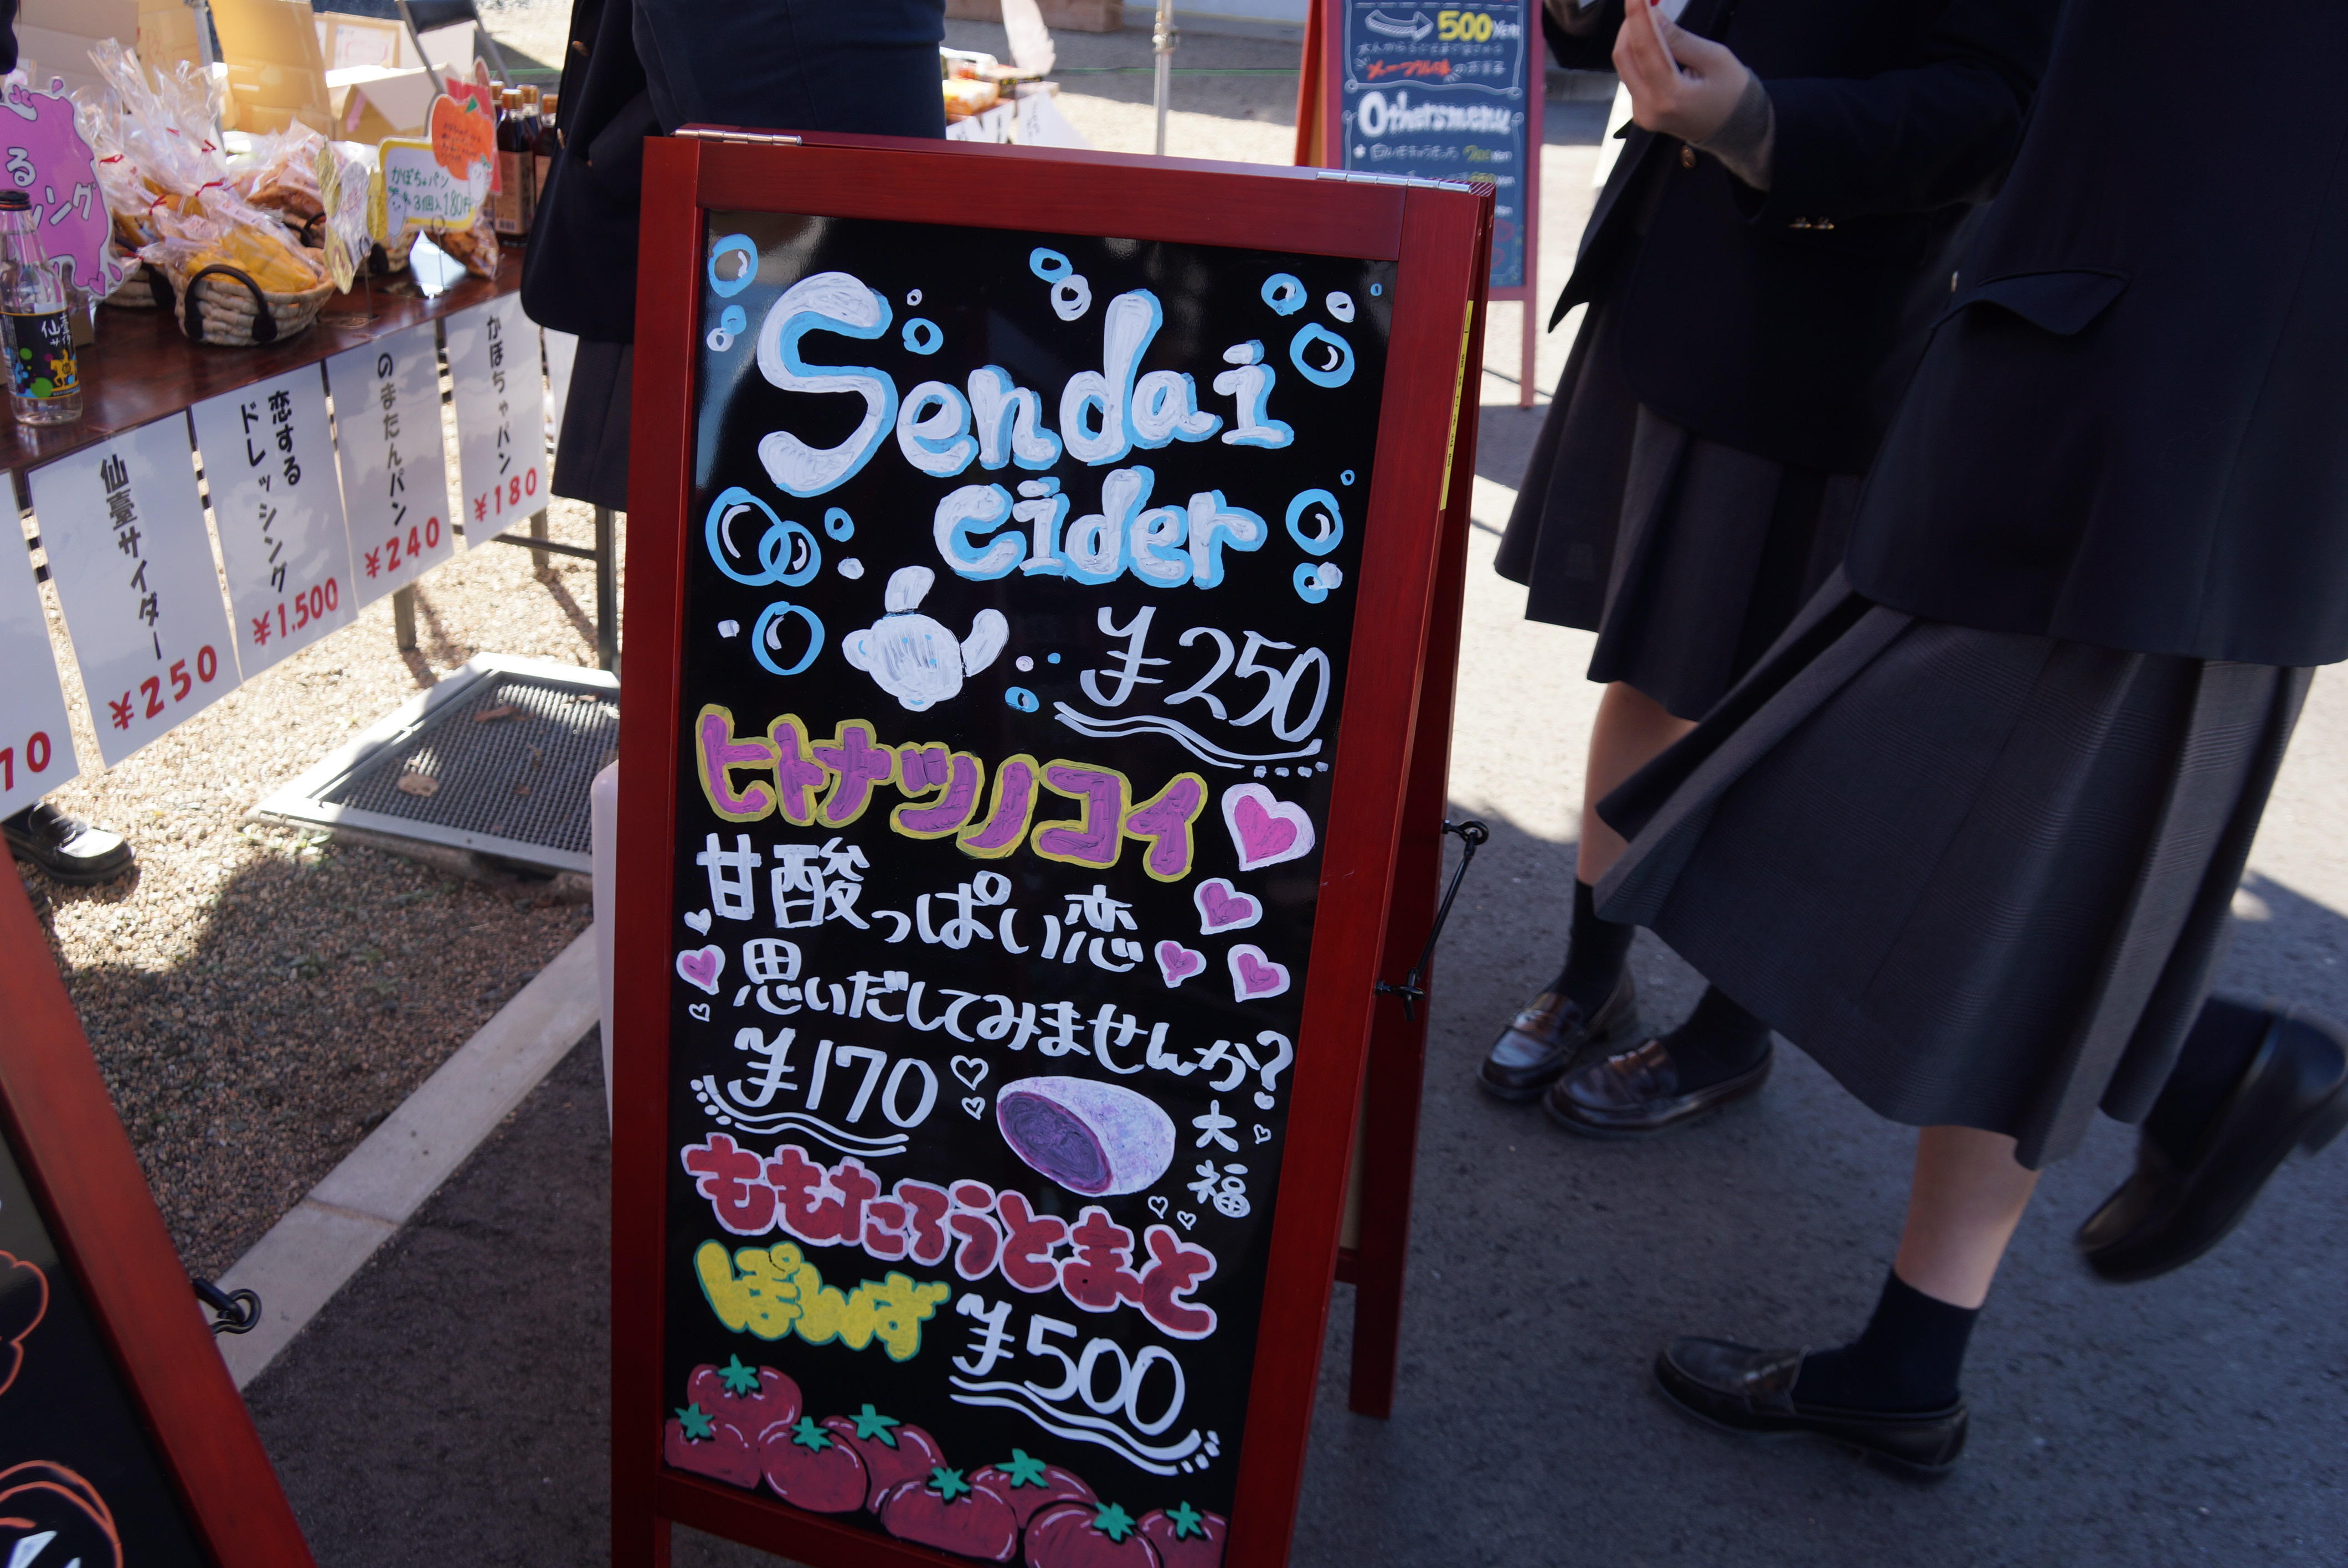 Sendai
cider
¥250
ヒトナツノコイ
甘酸っぱい恋
思いだしてみませんか?
¥170
大福
ももたろうとまと
ぽんず
¥500
る
ング
かぼちゃパン
3個入180円
仙臺
70
仙臺サイダー
¥250
恋する
ドレッシング
¥1,500
のまたんパン
¥240
かぼちゃパン
¥180
500Yen
メープル味
Othersmenu